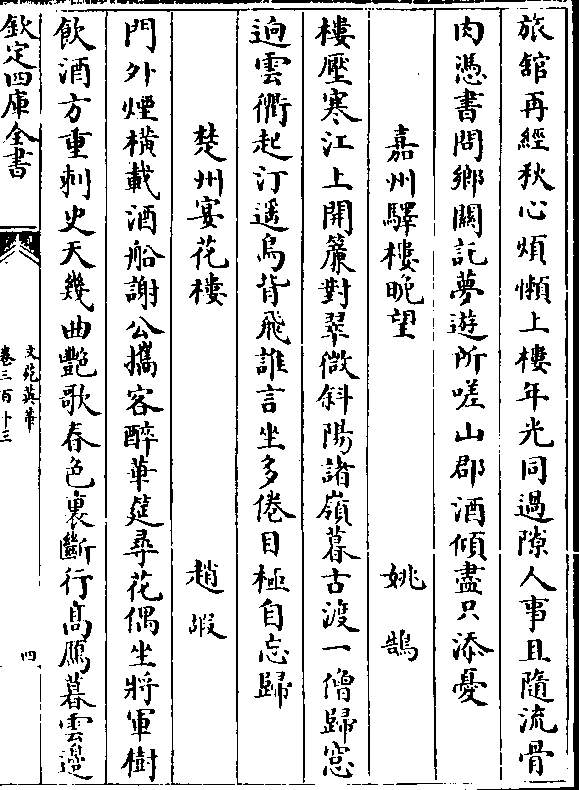 旅舘再經秋心煩懶上樓年光同過隙人事且隨流骨
肉憑書問鄉關託夢遊所嗟山郡酒傾盡只添憂
嘉州驛樓晩望 姚鵠
樓壓寒江上開簾對翠微斜陽諸嶺暮古渡一僧歸窓
逈雲衝起汀遥鳥背飛誰言坐多倦目極自忘歸
楚州宴花樓 趙嘏
門外煙横載酒船謝公攜客醉華筵尋花偶坐將軍樹
飲酒方重刺史天幾曲艷歌春色裏斷行髙鴈暮雲邉
欽定四庫全書
文苑英華
卷三百十三
四